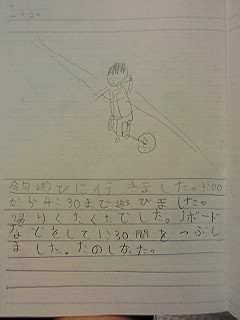 今日遊びに行きました。3:00
から4:30まで遊びました。
帰りくたくたでした。Jボード
などをして1:30間をつぶし
ました。たのしかった。